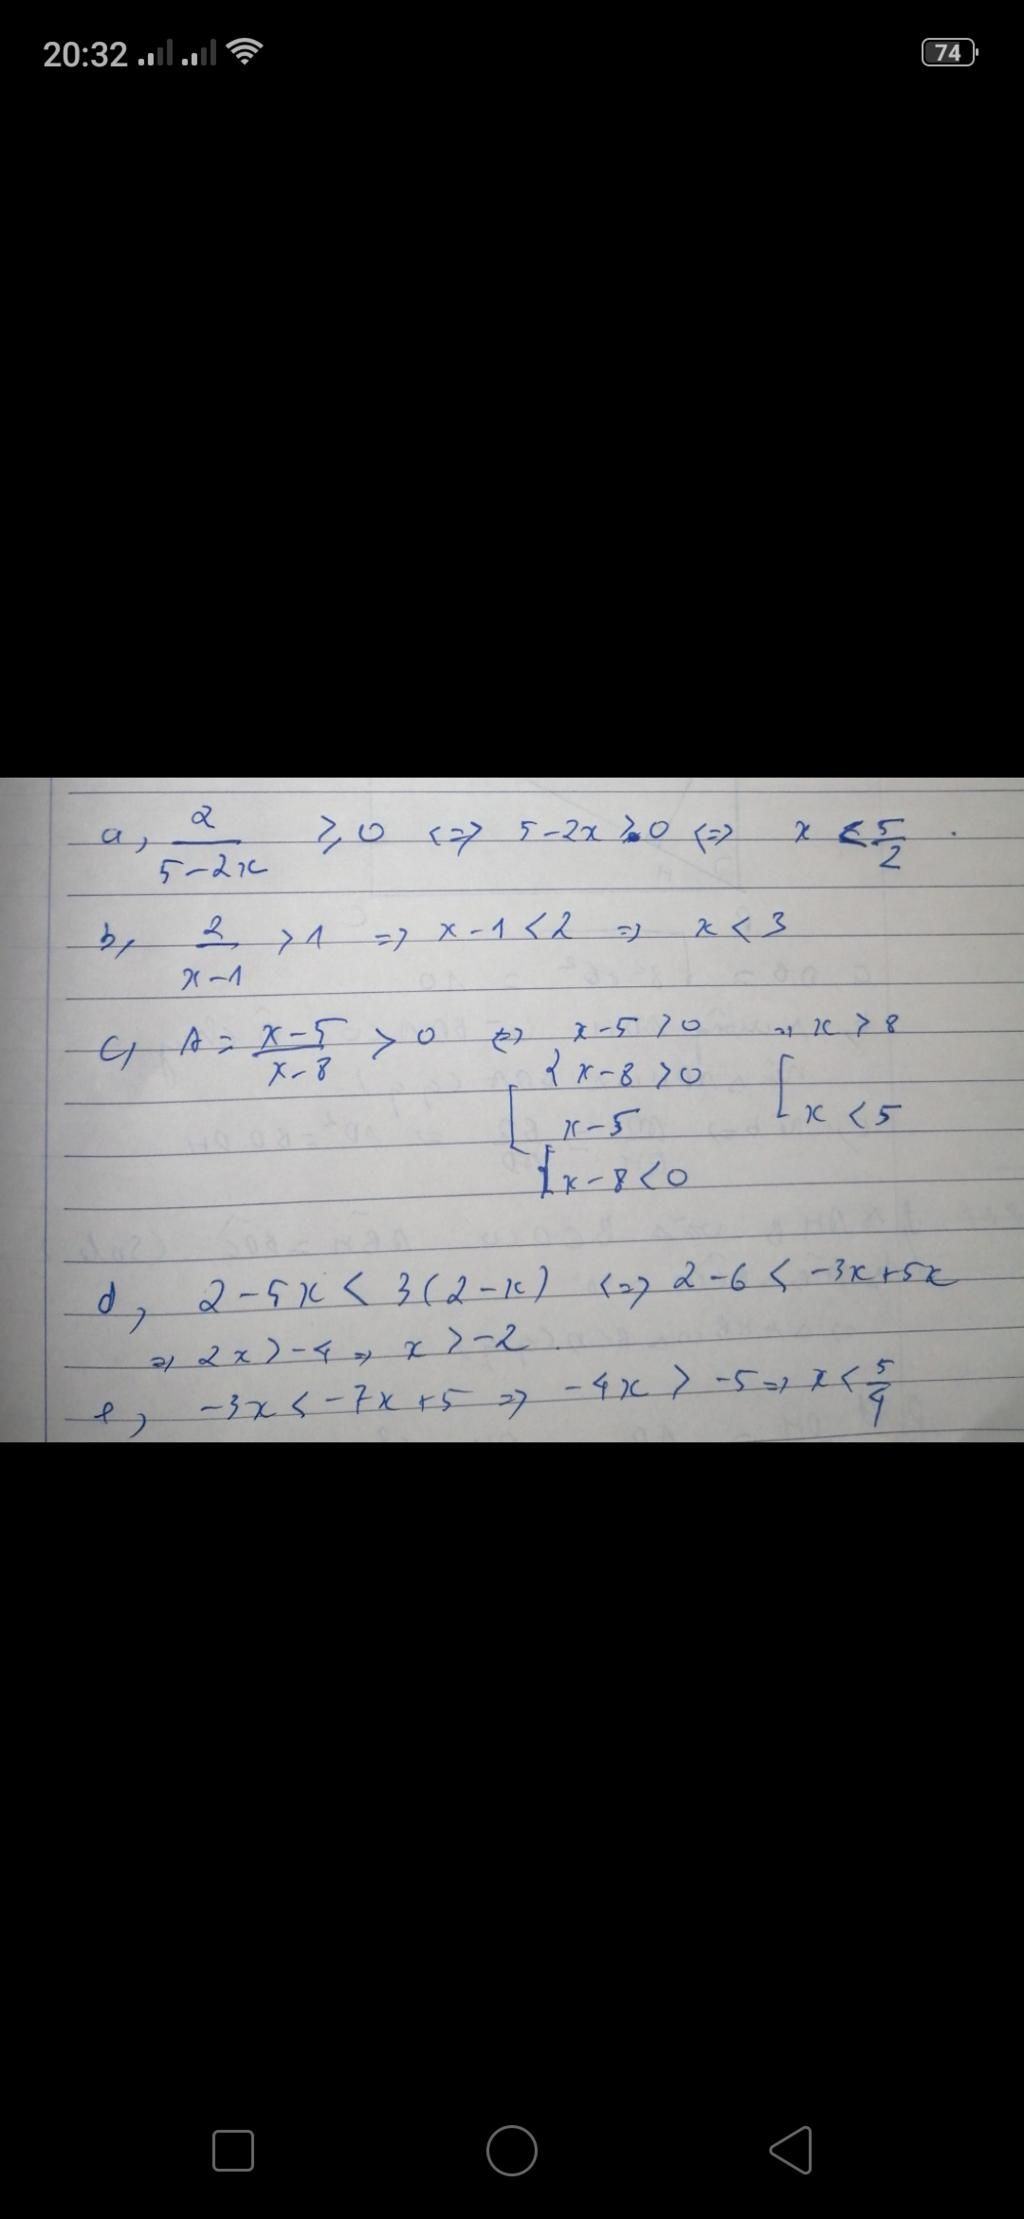 20:32 74
a, 2/(5-2x) ≥ 0 <=> 5-2x > 0 <=> x < 5/2 .
b, 2/(x-1) > 1 => x-1 < 2 => x < 3
c, A = (x-5)/(x-8) > 0 <=> [ { x-5 > 0 => [ x > 8
x-8 > 0
x-5 x < 5
{ x-8 < 0
d, 2-5x < 3(2-x) <=> 2-6 < -3x+5x
=> 2x > -4 => x > -2 .
e, -3x < -7x+5 => -4x > -5 => x < 5/4